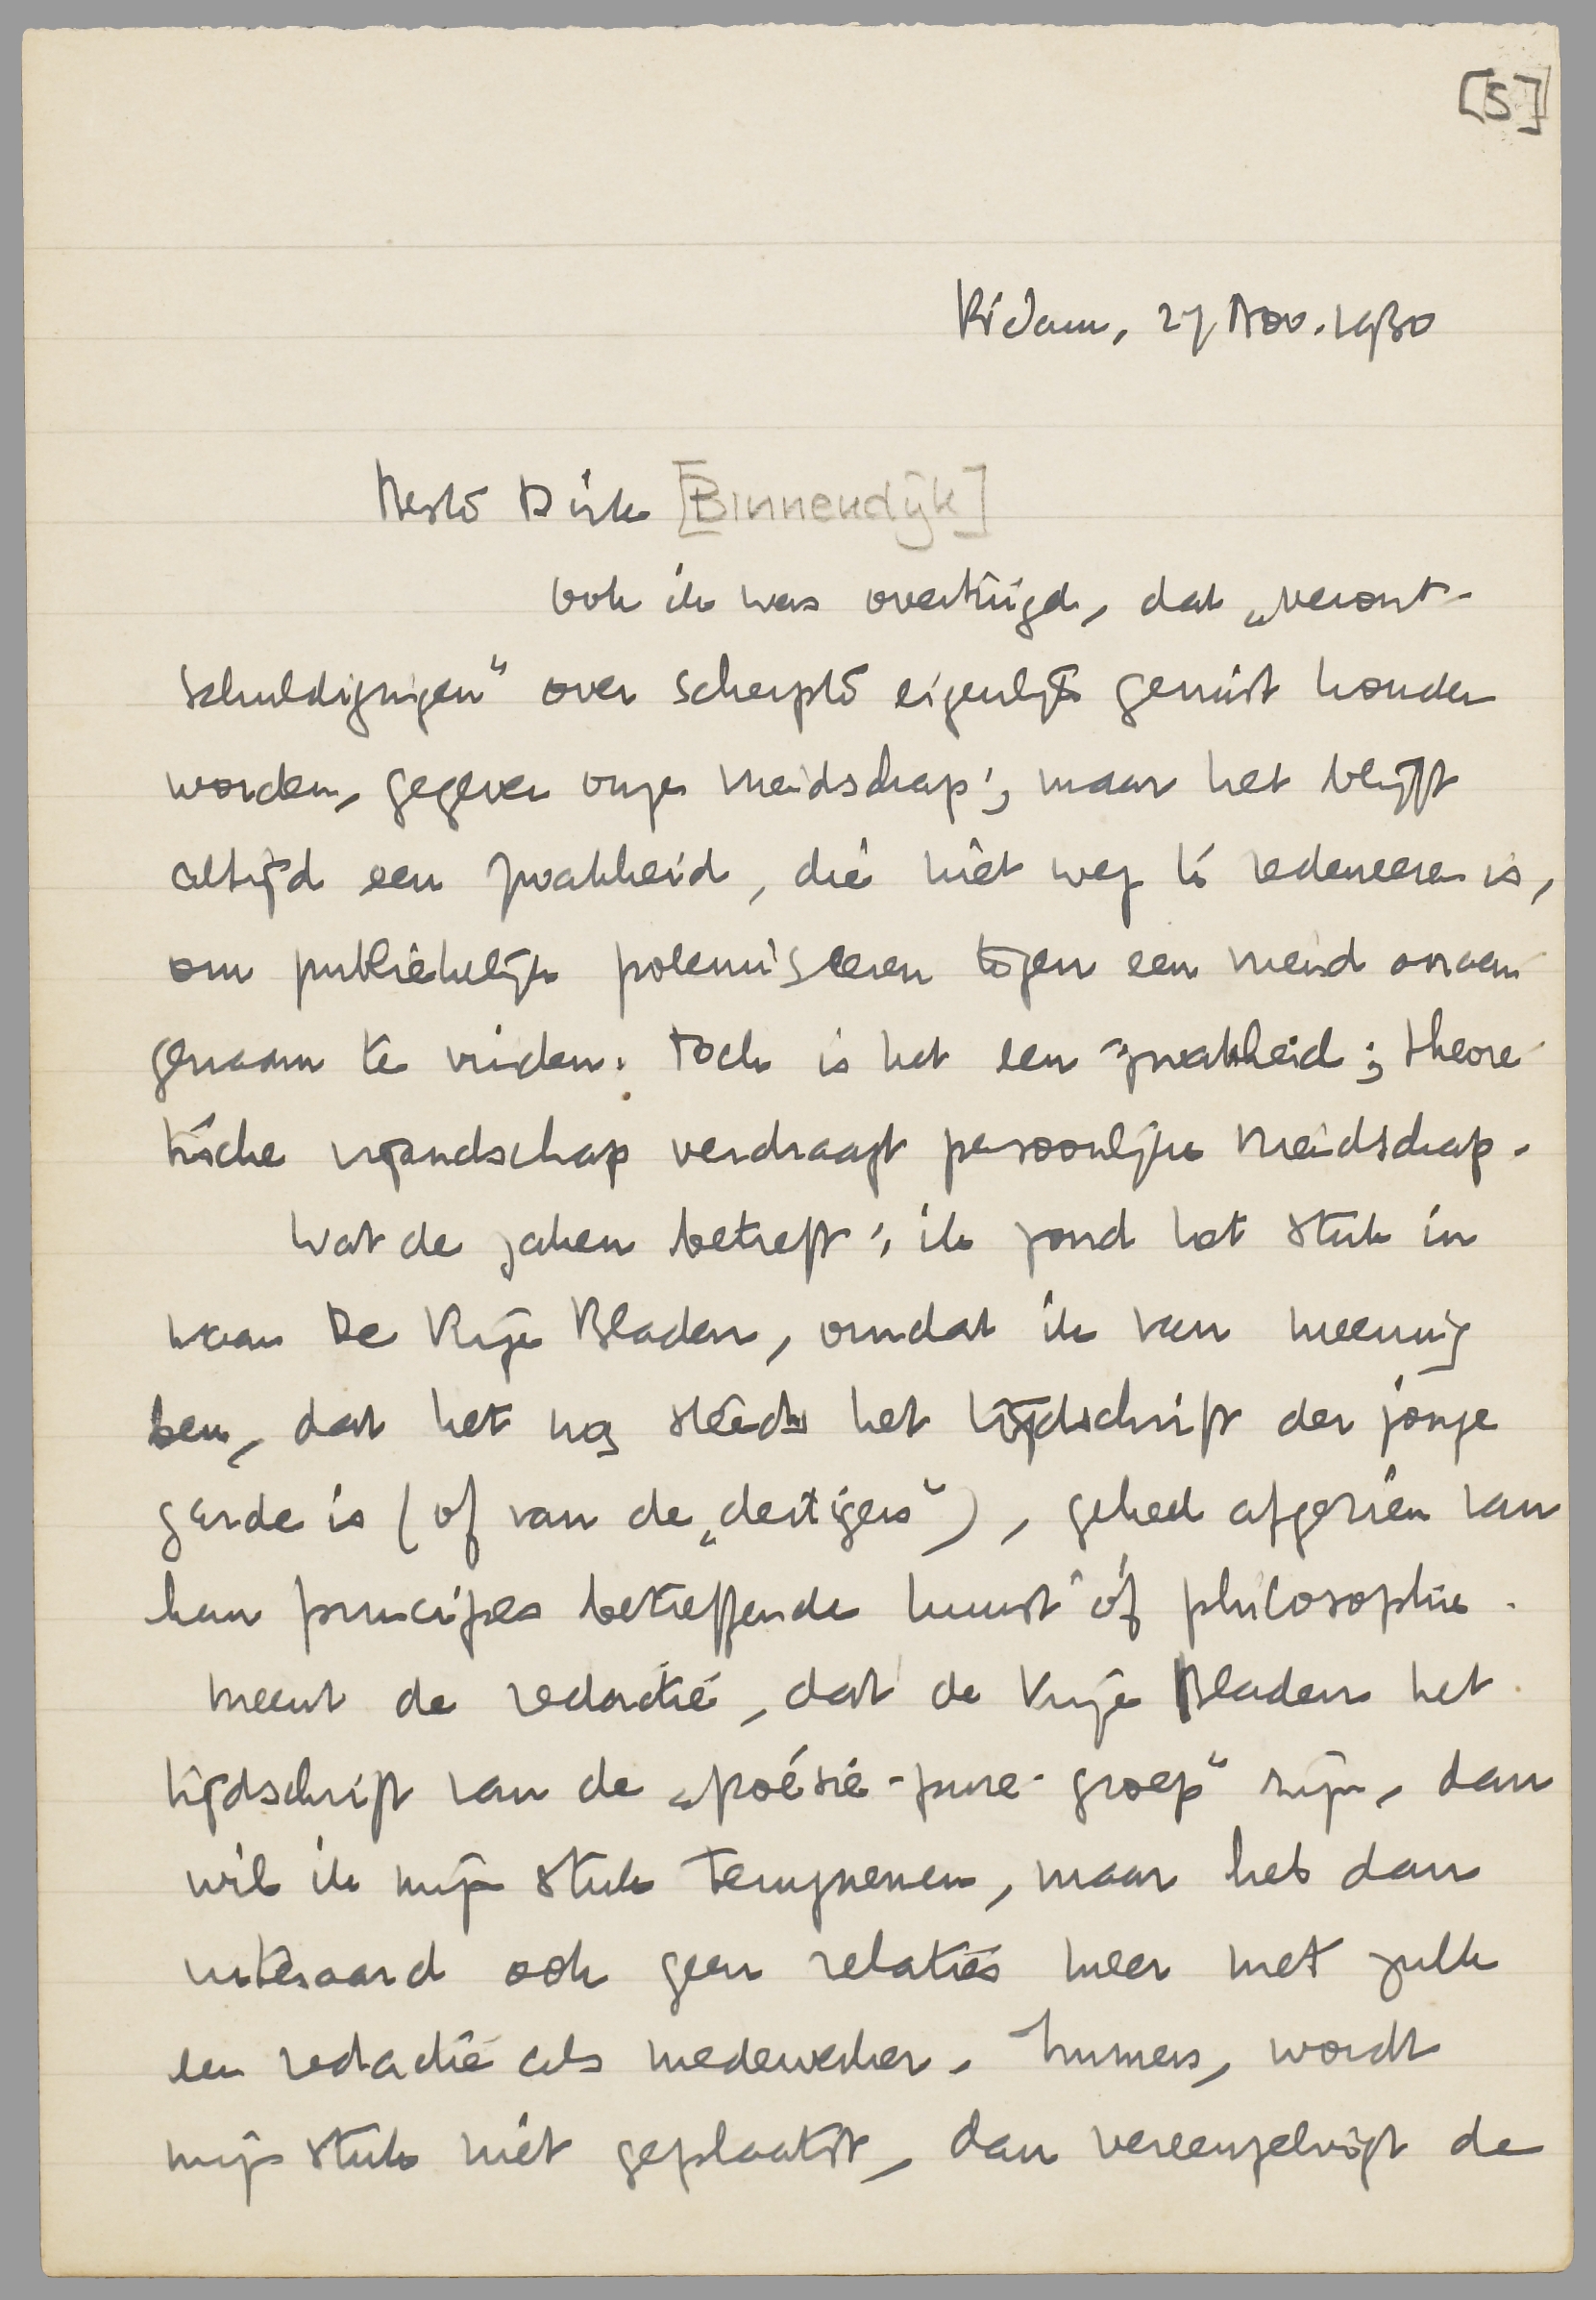 [5]
R'dam, 27 Nov. 1930
Beste Dirk [Binnendijk]
Ook ik was overtuigd, dat „veront-
schuldigingen" over scherpte eigenlijk gemist konden
worden, gegeven onze vriendschap; maar het blijft
altijd een zwakheid, die niet weg te redeneeren is,
om publiekelijk polemiseeren tegen een vriend onaan-
genaam te vinden. Toch is het een zwakheid; theore-
tische vijandschap verdraagt persoonlijke vriendschap.
Wat de zaken betreft; ik zond het stuk in
naar De Vrije Bladen, omdat ik van meening
ben, dat het nog steeds het tijdschrift der jonge
garde is (of van de „dertigers"), geheel afgezien van
hun principes betreffende kunst òf philosophie.
Meent de redactie, dat de Vrije Bladen het
tijdschrift van de „poésie-pure-groep" zijn, dan
wil ik mijn stuk terugnemen, maar heb dan
uiteraard ook geen relaties meer met zulk
een redactie als medewerker. Immers, wordt
mijn stuk niet geplaatst, dan vereenzelvigt de